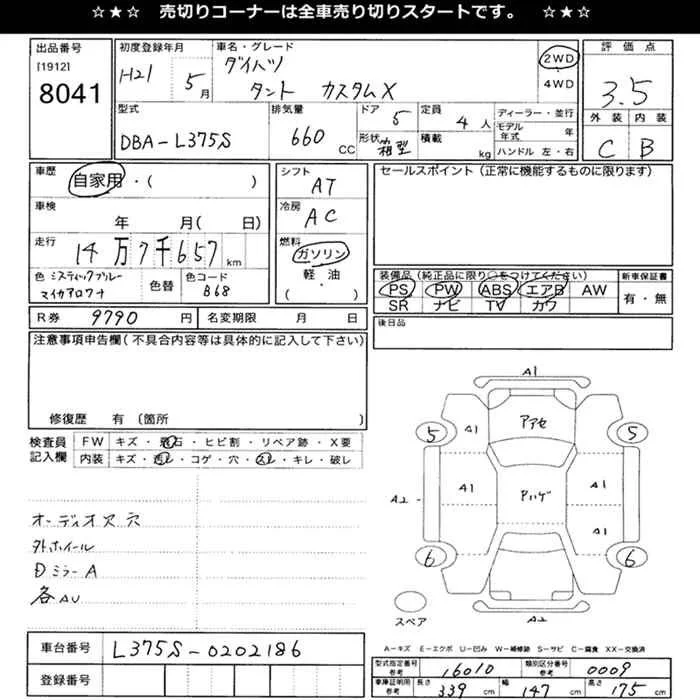 ☆★☆ 売切りコーナーは全車売り切りスタートです。 ☆★☆
出品番号
[1912]
8041
初度登録年月
H21 5月
車名・グレード
ダイハツ
タント カスタムX
2WD
4WD
評価点
3.5
外装 内装
C B
型式
DBA-L375S
排気量
660 CC
ドア 5
形状 箱型
定員 4 人
積載 kg
ディーラー・並行
モデル年式 年
ハンドル 左・右
車歴
自家用・( )
車検
年 月( 日)
走行
14万7千657 km
色 ミスティックブルー
マイカ
色替
色コード
B68
シフト
AT
冷房
AC
燃料
ガソリン
軽・油
( )
セールスポイント(正常に機能するものに限ります)
装備品(純正品に限り○をつけてください)
PS PW ABS エアB AW
SR ナビ TV カワ
新車保証書
有・無
R券 9790 円
名変期限 月 日
後日品
注意事項申告欄(不具合内容等は具体的に記入して下さい)
修復歴 有 〔箇所 〕
検査員
記入欄
FW キズ・飛石・ヒビ割・リペア跡・X要
内装 キズ・汚レ・コゲ・穴・スレ・キレ・破レ
オーディオス穴
外ホイール
DミラーA
各AU
A1
アアセ
5 A1 A1 5
A2 A1 アハゲ A1 A2
A1
6 6
A2
スペア
A-キズ E-エクボ U-凹み W-補修跡 S-サビ C-腐食 XX-交換済
車台番号 L375S-0202186
登録番号
型式指定番号 参考 16010
類別区分番号 参考 0009
車庫証明用 参考 長さ 339 cm 幅 147 cm 高さ 175 cm